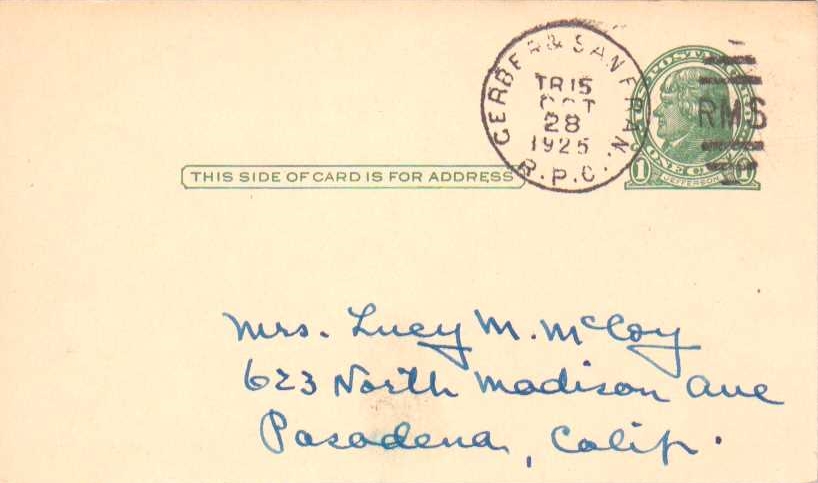 GERBER & SAN FRAN.
TR 15
OCT
28
1925
R.P.O.
RMS
1 JEFFERSON 1
THIS SIDE OF CARD IS FOR ADDRESS
Mrs. Lucy M. McCoy
623 North Madison Ave
Pasadena, Calif.